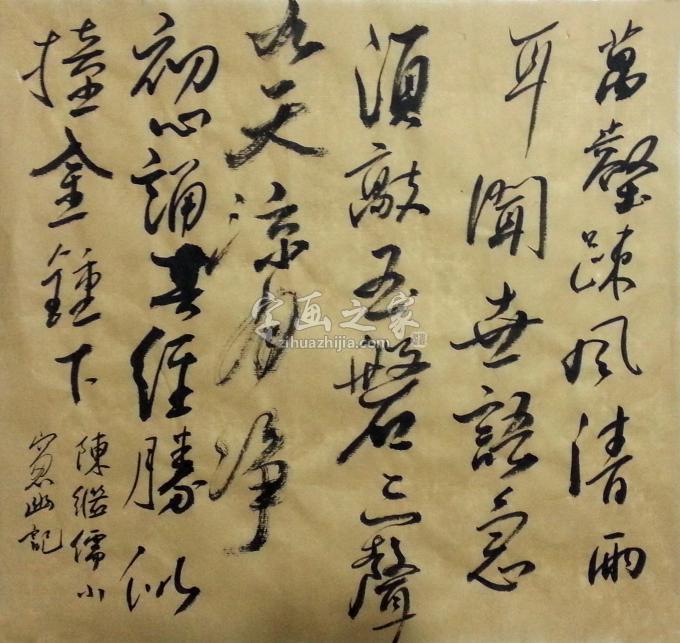 萬壑踈风清雨
耳聞世語急
須敲玉磐三聲
九天涼月净
初心誦其經勝似
撞金鍾下
陳繼儒小
窗幽記
字画之家
zihuazhijia.com